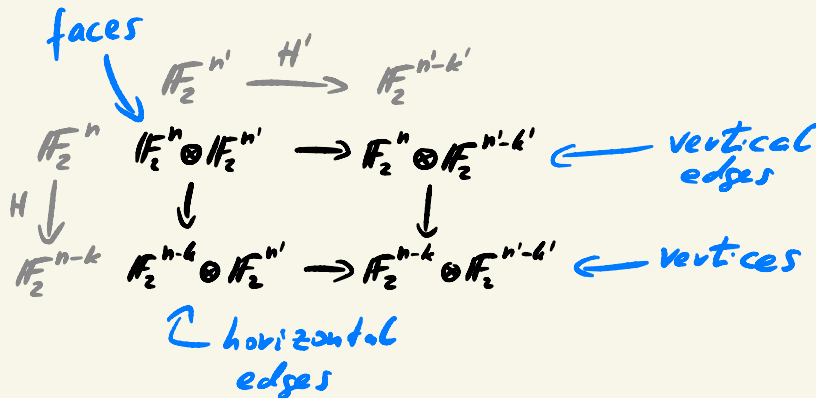 faces
𝔽₂ⁿ' H' 𝔽₂ⁿ'⁻ᵏ'
𝔽₂ⁿ 𝔽₂ⁿ ⊗ 𝔽₂ⁿ' → 𝔽₂ⁿ ⊗ 𝔽₂ⁿ'⁻ᵏ' vertical
edges
H
𝔽₂ⁿ⁻ᵏ 𝔽₂ⁿ⁻ᵏ ⊗ 𝔽₂ⁿ' → 𝔽₂ⁿ⁻ᵏ ⊗ 𝔽₂ⁿ'⁻ᵏ' vertices
horizontal
edges